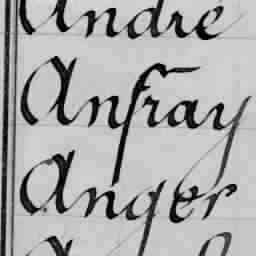 André
Anfray
Anger